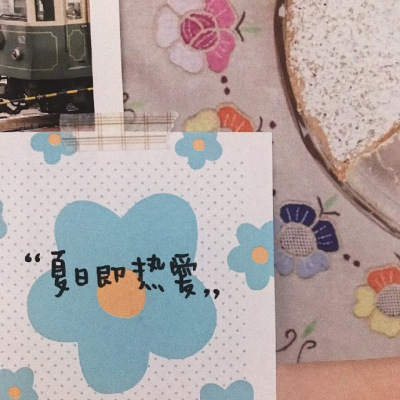 “夏日即热愛„